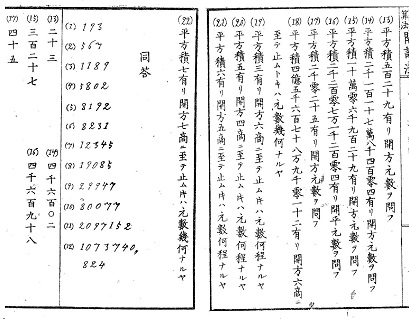 (13) 平方積五百二十九有リ開方元數ヲ問フ
(14) 平方積二千一百十七萬八千四百零四有リ開方元數ヲ問フ
(15) 平方積一十萬零六千九百二十九有リ開方元數ヲ問フ
(16) 平方積二千二百零七萬一千二百零四有リ開平元數ヲ問フ
(17) 平方積二千零二十五有リ開方元數ヲ問フ
(18) 平方積四億五千六百七十八万九千零一十二有リ開方六商ニ
至テ止ムトキハ元數幾何ナルヤ
(19) 平方積三有リ開方六商ニ至テ止ムトキハ元數何程ナルヤ
(20) 平方積五有リ開方四商ニ至テ止ムトキハ元數何程ナルヤ
(21) 平方積六有リ開方五商ニ至テ止ムトキハ元數何程ナルヤ
(22) 平方積七有リ開方七商ニ至テ止ムトキハ元數幾何ナルヤ
回答
(1) 193
(2) 567
(3) 1189
(4) 5802
(5) 8192
(6) 8231
(7) 12345
(8) 19085
(9) 29947
(10) 80077
(11) 2097152
(12) 1073740,
824
(13) 二十三
(14) 四千六百〇二
(15) 三百二十七
(16) 四千六百九十八
(17) 四十五